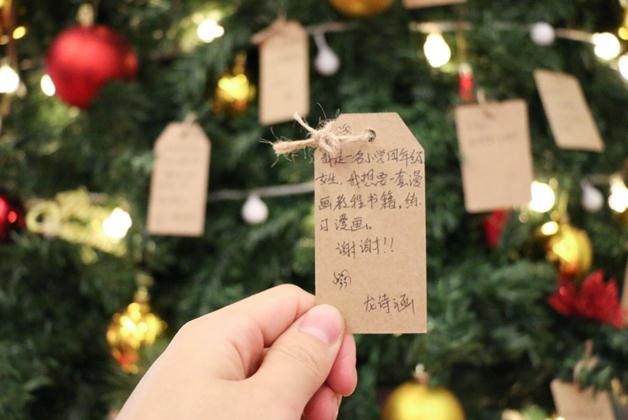 我是一名小学四年级
女生，我想要一套漫
画教程书籍，练
习漫画。
谢谢!!
龙诗涵